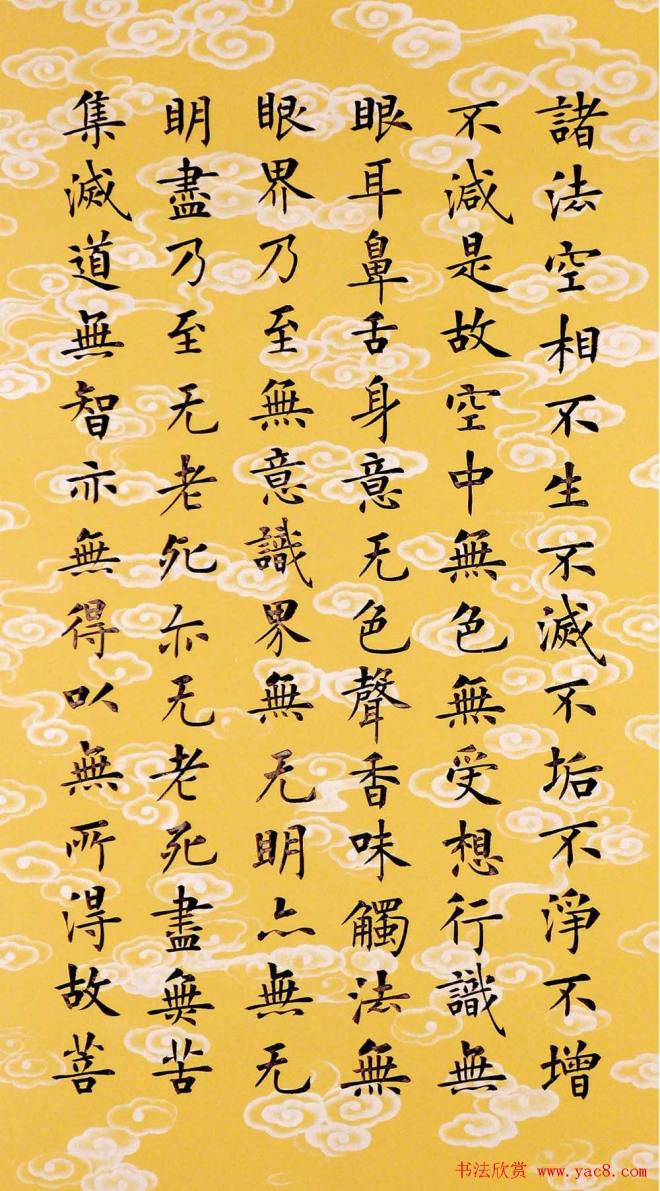 諸法空相不生不滅不垢不淨不增
不減是故空中無色無受想行識無
眼耳鼻舌身意无色聲香味觸法無
眼界乃至無意識界無无明亦無无
明盡乃至无老死亦无老死盡無苦
集滅道無智亦無得以無所得故菩
书法欣赏 www.yac8.com